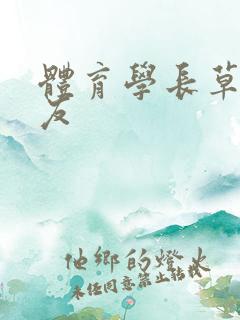 體育學長草
友
他鄉的燈火
未任同意禁止轉載